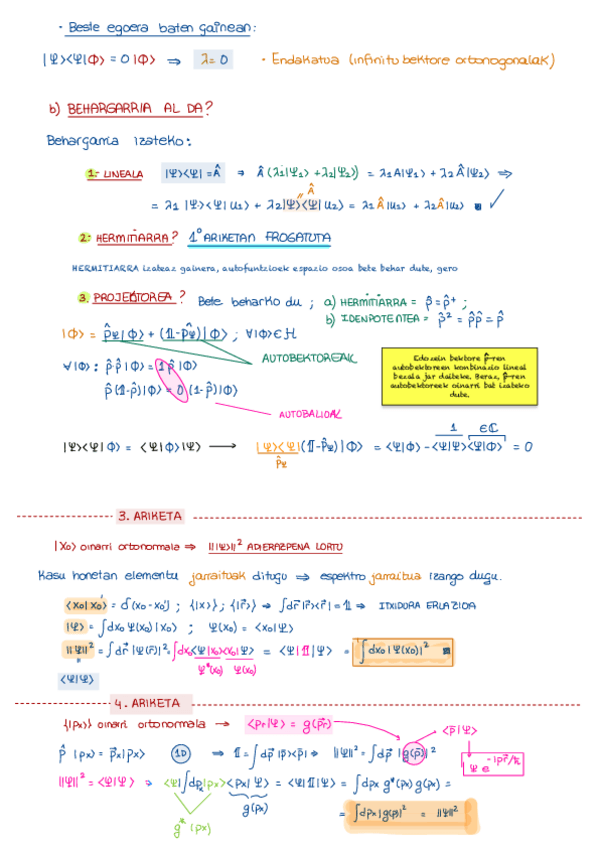 - Beste egoera baten gainean:
|Ψ><Ψ|Φ> = 0 |Φ> ⇒ λ = 0 - Endakatua (infinitu bektore ortonogonalak)
b) BEHARGARRIA AL DA?
Behargarria izateko:
1.- LINEALA |Ψ><Ψ| = Â ⇒ Â (λ1|Ψ1> + λ2|Ψ2>) = λ1A|Ψ1> + λ2Â|Ψ2> ⇒
Â
= λ1 |Ψ><Ψ|u1> + λ2|Ψ><Ψ|u2> = λ1Â|u1> + λ2Â|u2> ■ ✓
2.- HERMITIARRA? 1º ARIKETAN FROGATUTA
HERMITIARRA izateaz gainera, autofuntzioek espazio osoa bete behar dute, gero
3. PROJEKTOREA? Bete beharko du ; a) HERMITIARRA = p̂ = p̂⁺ ;
b) IDENPOTENTEA = p̂² = p̂p̂ = p̂
|Φ> = p̂Ψ|Φ> + (𝟙-p̂Ψ)|Φ> ; ∀|Φ>∈ℋ
AUTOBEKTOREAK
∀|Φ> : p̂p̂|Φ> = 1p̂|Φ>
p̂(𝟙-p̂)|Φ> = 0 (1-p̂)|Φ>
AUTOBALIOAK
Edozein bektore p̂-ren
autobektoreen konbinazio lineal
bezala jar daiteke. Beraz, p̂-ren
autobektoreek oinarri bat izateko
dute.
1 ∈ℂ
|Ψ><Ψ|Φ> = <Ψ|Φ>|Ψ> ⟶ |Ψ><Ψ|(𝟙-p̂Ψ)|Φ> = <Ψ|Φ> - <Ψ|Ψ><Ψ|Φ> = 0
p̂Ψ
3. ARIKETA
|X0> oinarri ortonormala ⇒ ||Ψ||² ADIERAZPENA LORTU
Kasu honetan elementu jarraituak ditugu ⇒ espektro jarraitua izango dugu.
<x0|x0'> = δ(x0-x0') ; {|x>} ; {|r⃗>} ⇒ ∫dr⃗|r⃗><r⃗| = 𝟙 ⇒ ITXIDURA ERLAZIOA
|Ψ> = ∫dx0 Ψ(x0)|x0> ; Ψ(x0) = <x0|Ψ>
||Ψ||² = ∫dr⃗ |Ψ(r⃗)|² = ∫dx0<Ψ|x0><x0|Ψ> = <Ψ|𝟙|Ψ> = ∫dx0|Ψ(x0)|² ■
Ψ*(x0) Ψ(x0)
<Ψ|Ψ>
4. ARIKETA
{|Px>} oinarri ortonormala → <Pr|Ψ> = g(p⃗r)
<p̄|Ψ>
p̂ |px> = px|px> 1D ⇒ 𝟙 = ∫dp⃗ |p><p| ⇒ ||Ψ||² = ∫dp⃗ |g(p⃗)|²
Ψ e^-ip⃗r⃗/ℏ
||Ψ||² = <Ψ|Ψ> ⇒ <Ψ|∫dpx|px><px|Ψ> = <Ψ|𝟙|Ψ> = ∫dpx g*(px) g(px) =
g(px)
g*(px)
= ∫dpx|g(p)|² = ||Ψ||²